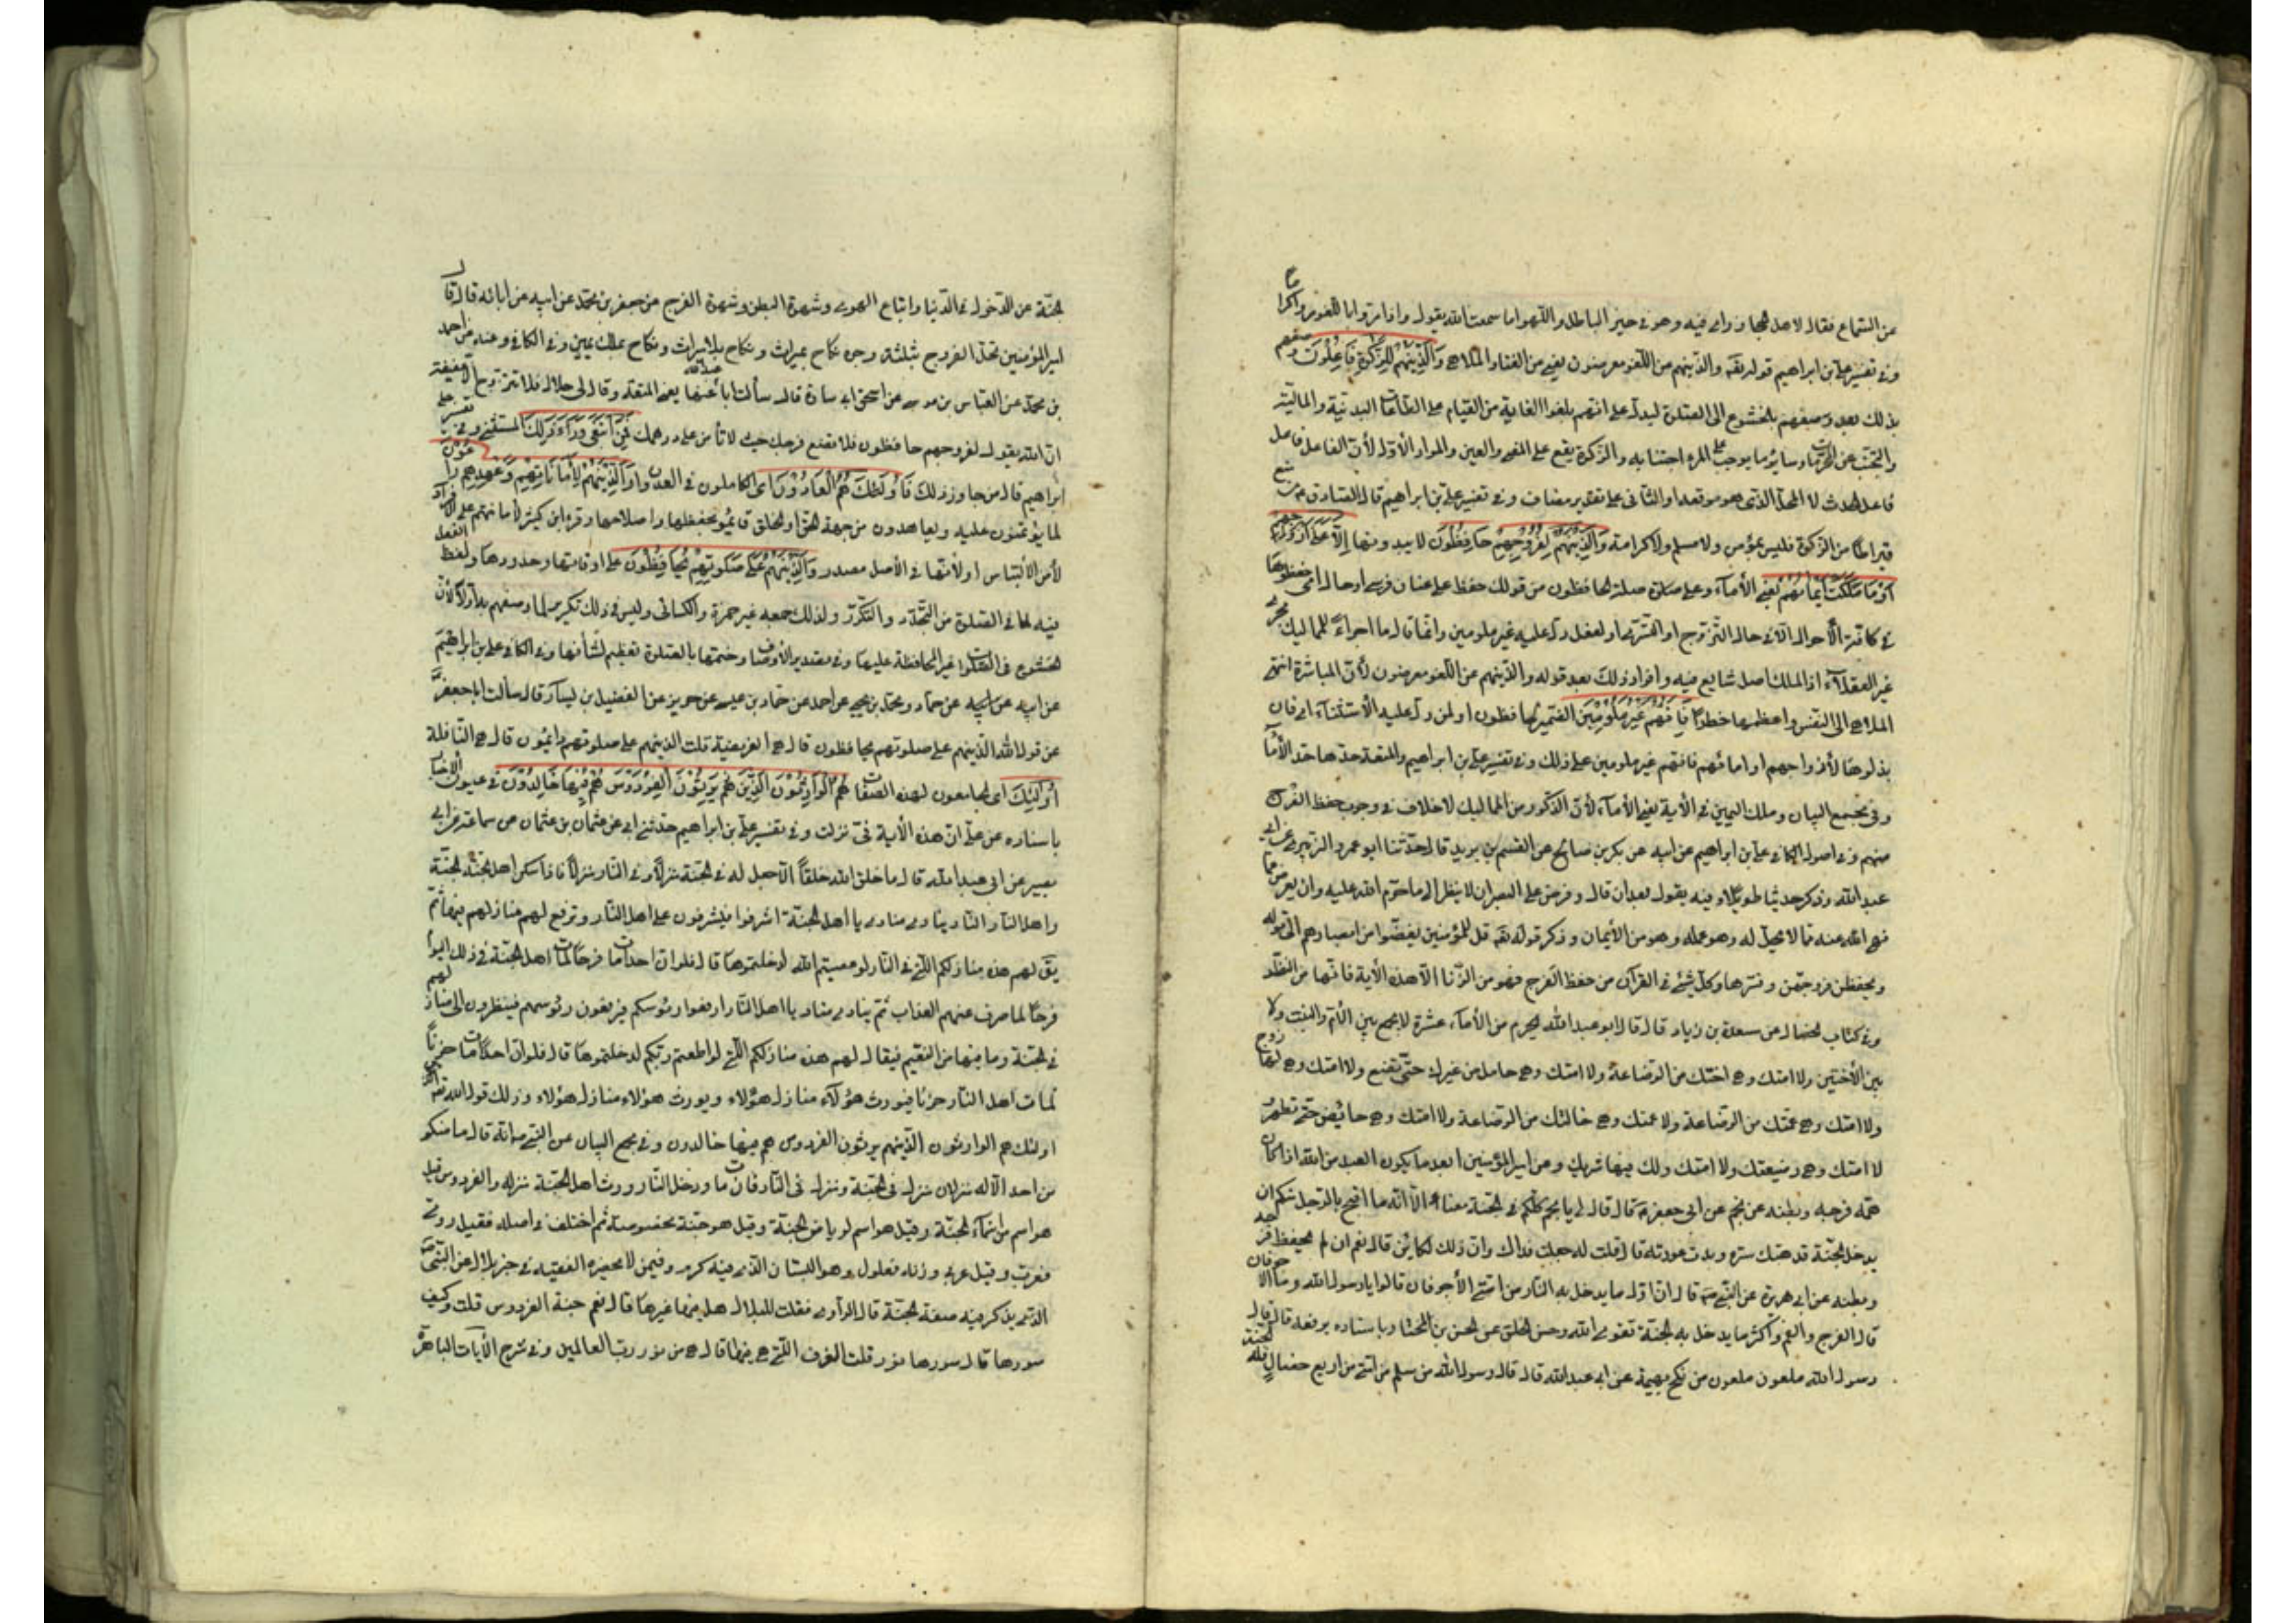 عن السماع فقال لاهل الحجاز رأى فيه وهو في حيز الباطل واللهو اما سمعت الله يقول واذا مروا باللغو مروا كراما
وفي تفسير علي بن ابراهيم قوله تعه والذينهم عن اللغو معرضون يعني من الغناء والملاهي وَالَّذِينَهُمْ لِلزَّكٰوةِ فَاعِلُونَ وصفهم
بذلك بعد وصفهم بالخشوع في الصلوة ليدل على انهم بلغوا الغاية من القيام على الطاعات البدنية والمالية
والتجنب عن المحرمات وسائر ما يوجب على المرء اجتنابه والزكوة يقع على المعنى والعين والمراد الأول لأن الفاعل فاعل
فاعل الحدث لا المحل الذى هو موقعه او الثاني على تقدير مضاف وفي تفسير علي بن ابراهيم قال الصادق من منع
قيراطا من الزكوة فليس بمؤمن ولا مسلم ولا كرامة وَالَّذِينَهُمْ لِفُرُوجِهِمْ حَافِظُونَ لا يبدونها إِلَّا عَلَى أَزْوَاجِهِمْ
أَوْ مَا مَلَكَتْ أَيْمَانُهُمْ يعني الأماء وعلى صلة لحافظون من قولك حفظ على عنان فرسى او حال اى حفظوها
في كافة الأحوال الا في حال التزوج او التسرى او لفعل دل عليه غير ملومين وانما قال ما اجراء للمماليك مجرى
غير العقلاء اذ الملك اصل شايع فيه وافراد ذلك بعد قوله والذينهم عن اللغو معرضون لأن المباشرة اشهى
الملاهي الى النفس واعظمها خطرا فَإِنَّهُمْ غَيْرُ مَلُومِينَ الضمير لحافظون او لمن دل عليه الأستثناء اى فان
بذلوها لأزواجهم او امائهم فانهم غير ملومين على ذلك وفي تفسير علي بن ابراهيم والمتعة حدها حد الأماء
وفي مجمع البيان وملك اليمين في الأية يعني الأماء لأن الذكور من المماليك لا خلاف في وجوب حفظ الفرج
منهم وفي اصول الكافي علي بن ابراهيم عن ابيه عن بكر بن صالح عن القسم بن بريد قال حدثنا ابو عمرو الزبيرى عن ابي
عبد الله وذكر حديثا طويلا وفيه يقول بعد ان قال وفرض على البصر ان لا ينظر الى ما حرم الله عليه وان يعرض عما
نهى الله عنه مما لا يحل له وهو عمله وهو من الأيمان وذكر قوله تعه قل للمؤمنين يغضوا من ابصارهم الى قوله
ويحفظن فروجهن وفسرها وكل شئ في القرآن من حفظ الفرج فهو من الزنا الا هذه الأية فانها من النظر
وفي كتاب الخصال عن مسعدة بن زياد قال قال ابو عبد الله يحرم من الأماء عشرة لا يجمع بين الأم والبنت ولا
بين الأختين ولا امتك وهى اختك من الرضاعة ولا امتك وهى حامل من غيرك حتى تضع ولا امتك وهى لها زوج
ولا امتك وهى عمتك من الرضاعة ولا امتك وهى خالتك من الرضاعة ولا امتك وهى حائض حتى تطهر
لا امتك وهى رضيعتك ولا امتك ولك فيها شريك وعن امير المؤمنين ابعد ما يكون العبد من الله اذا كان
همه فرجه وبطنه عن نجم عن ابى جعفر قال قال لى يا نجم كلكم في الجنة معنا الا انه ما اقبح بالرجل منكم ان
يدخل الجنة قد هتك ستره وبدت عورته قال قلت له جعلت فداك وان ذلك لكائن قال نعم ان لم يحفظ فرجه
وبطنه عن ابى هريرة عن النبى قال ان اول ما يدخل به النار من امتى الأجوفان قالوا يا رسول الله وما الاجوفان
قال الفرج والفم واكثر ما يدخل به الجنة تقوى الله وحسن الخلق عن الحسن بن المختار باسناده يرفعه قال قال
رسول الله ملعون ملعون من نكح بهيمة عن ابى عبد الله قال قال رسول الله من سلم من امتى من اربع خصال فله الجنة
لجنة عن الدخول في الدنيا واتباع الهوى وشهوة البطن وشهوة الفرج عن جعفر بن محمد عن ابيه عن ابائه قال قال
امير المؤمنين تحل الفروج بثلثة وجوه نكاح بميراث ونكاح بلا ميراث ونكاح بملك يمين وفي الكافي وعنه عن احمد
بن محمد عن العباس بن موسى عن اسحق ابى سارة قال سألت ابا عبد الله عنها يعنى المتعة وقال لى حلال فلا تتزوج الا عفيفة
ان الله يقول لفروجهم حافظون فلا تضع فرجك حيث لا تأمن على درهمك فَمَنِ ابْتَغَى وَرَاءَ ذَلِكَ المستثنى وفي تفسير علي بن
ابراهيم قال من جاوز ذلك فَأُولَئِكَ هُمُ الْعَادُونَ اى الكاملون في العدوان وَالَّذِينَهُمْ لِأَمَانَاتِهِمْ وَعَهْدِهِمْ رَاعُونَ
لما يؤتمنون عليه ويعاهدون من جهة الحق او الخلق قائمون بحفظها واصلاحها وقرء ابن كثير لأمانتهم على الافراد
لأمن الألتباس او لأنها في الأصل مصدر وَالَّذِينَهُمْ عَلَى صَلَوٰتِهِمْ يُحَافِظُونَ على اوقاتها وحدودها ولفظ الفعل
فيه لما في الصلوة من التجدد والتكرر ولذلك جمعه غير حمزة والكسائى وليس في ذلك تكرير لما وصفهم به اولا لأن
الخشوع في الصلوات غير المحافظة عليها وفي تصدير الأوصاف وختمها بالصلوة تعظيم لشأنها وفي الكافي علي بن ابراهيم
عن ابيه عن حماد ومحمد بن يحيى عن احمد عن حماد بن عيسى عن حريز عن الفضيل بن يسار قال سألت ابا جعفر
عن قول الله الذينهم على صلوتهم يحافظون قال هى الفريضة قلت الذينهم على صلوتهم دائمون قال هى النافلة
أُولَئِكَ اى الجامعون لهذه الصفات هُمُ الْوَارِثُونَ الَّذِينَ هُمْ يَرِثُونَ الْفِرْدَوْسَ هُمْ فِيهَا خَالِدُونَ في عيون الاخبار
باسناده عن علي ان هذه الأية في نزلت وفي تفسير علي بن ابراهيم حدثني ابى عن عثمان بن عثمان عن سماعة عن ابى
بصير عن ابى عبد الله قال ما خلق الله خلقا الا جعل له في الجنة منزلا وفي النار منزلا فاذا سكن اهل الجنة الجنة
واهل النار النار ينادى مناد يا اهل الجنة اشرفوا فيشرفون على اهل النار وترفع لهم منازلهم فيها ثم
يقَ لهم هذه منازلكم التى في النار لو عصيتم الله لدخلتموها قال فلو ان احدا مات فرحا لمات اهل الجنة في ذلك اليوم
فرحا لما صرف عنهم العذاب ثم ينادى مناد يا اهل النار ارفعوا رئوسكم فيرفعون رئوسهم فينظرون الى منازلهم
في الجنة وما فيها من النعيم فيقال لهم هذه منازلكم التى لو اطعتم ربكم لدخلتموها قال فلو ان احدا مات حزنا
لمات اهل النار حزنا فيورث هؤلاء منازل هؤلاء ويورث هؤلاء منازل هؤلاء وذلك قول الله تعه
اولئك هم الوارثون الذينهم يرثون الفردوس هم فيها خالدون وفي مجمع البيان عن النبى انه قال ما منكم
من احد الا له منزلان منزل في الجنة ومنزل في النار فان مات ودخل النار ورث اهل الجنة منزله والفردوس قيل
هو اسم من اسماء الجنة وقيل هو اسم لرياض الجنة وقيل هو جنة مخصوصة ثم اختلف في اصله فقيل رومى
فعرب وقيل عربى وزنه فعلول وهو البستان الذى فيه كرم وفيمن لا يحضره الفقيه في خبر بلال عن النبى
الذى يذكر فيه صفة الجنة قال الراوى فقلت لبلال هل فيها غيرها قال نعم جنة الفردوس قلت وكيف
سورها قال سورها نور قلت الغرف التى هى فيها قال هى من نور رب العالمين وفي شرح الأيات الباهرة